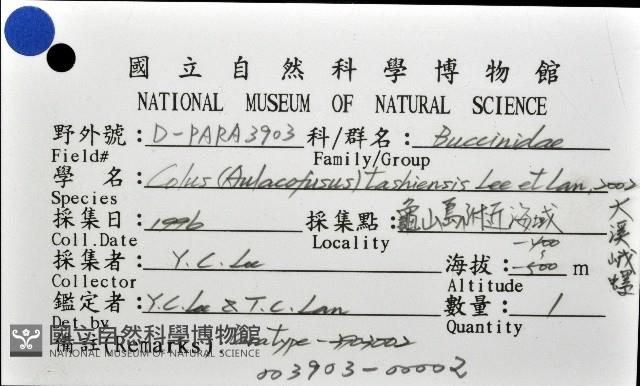 國立自然科學博物館
NATIONAL MUSEUM OF NATURAL SCIENCE
野外號: D-PARA3903 科/群名: Buccinidae
Field# Family/Group
學 名: Colus (Aulacofusus) tashiensis Lee et Lan, 2002
Species
大溪峨螺
採集日: 1996 採集點: 龜山島附近海域
Coll.Date Locality
採集者: Y.C. Lee 海拔: -400 ~ -500 m
Collector Altitude
鑑定者: Y.C. Lee & T.C. Lan 數量: 1
Det.by Quantity
備註(Remarks)
003903-00002
國立自然科學博物館
NATIONAL MUSEUM OF NATURAL SCIENCE